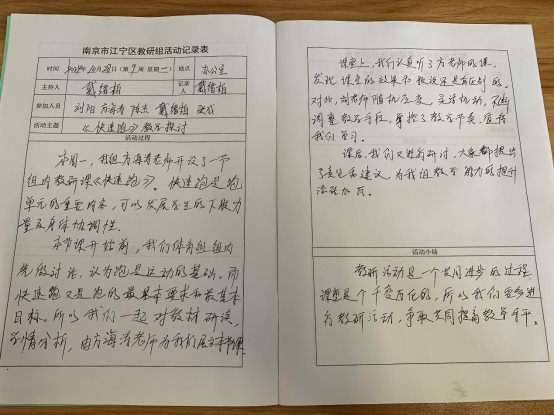 南京市江宁区教研组活动记录表
时间 10月28日(第9周 星期一) 地点 办公室
主持人 戴绪柏 记录人 戴绪柏
参加人员 刘阳 方海涛 陈杰 戴绪柏
活动主题 《快速跑》教学探讨
活动过程
本周一，我组方海涛老师开设了一节
组内教研课《快速跑》。快速跑是跑
单元的重要内容，可以发展学生的下肢力
量及身体协调性。
本节课开始前，我们体育组组内
先做讨论，认为跑是运动的基础。而
快速跑又是跑的最基本要求和最基本
目标。所以我们一起对教材研读，
学情分析，由方海涛老师为我们展示本节课。
课堂上，我们认真听了方老师的课，
发现课堂的效果和预设还是有区别的。
对此，方老师随机应变，灵活机动，不断
调整教学手段，掌控了教学节奏，值得
我们学习。
课后，我们又进行研讨，大家都提出
了意见和建议，为我组教学能力的提升
添砖加瓦。
活动小结
教研活动是一个共同进步的过程，
课堂是个千变万化的，所以我们要多进
行教研活动，争取共同提高教学水平。